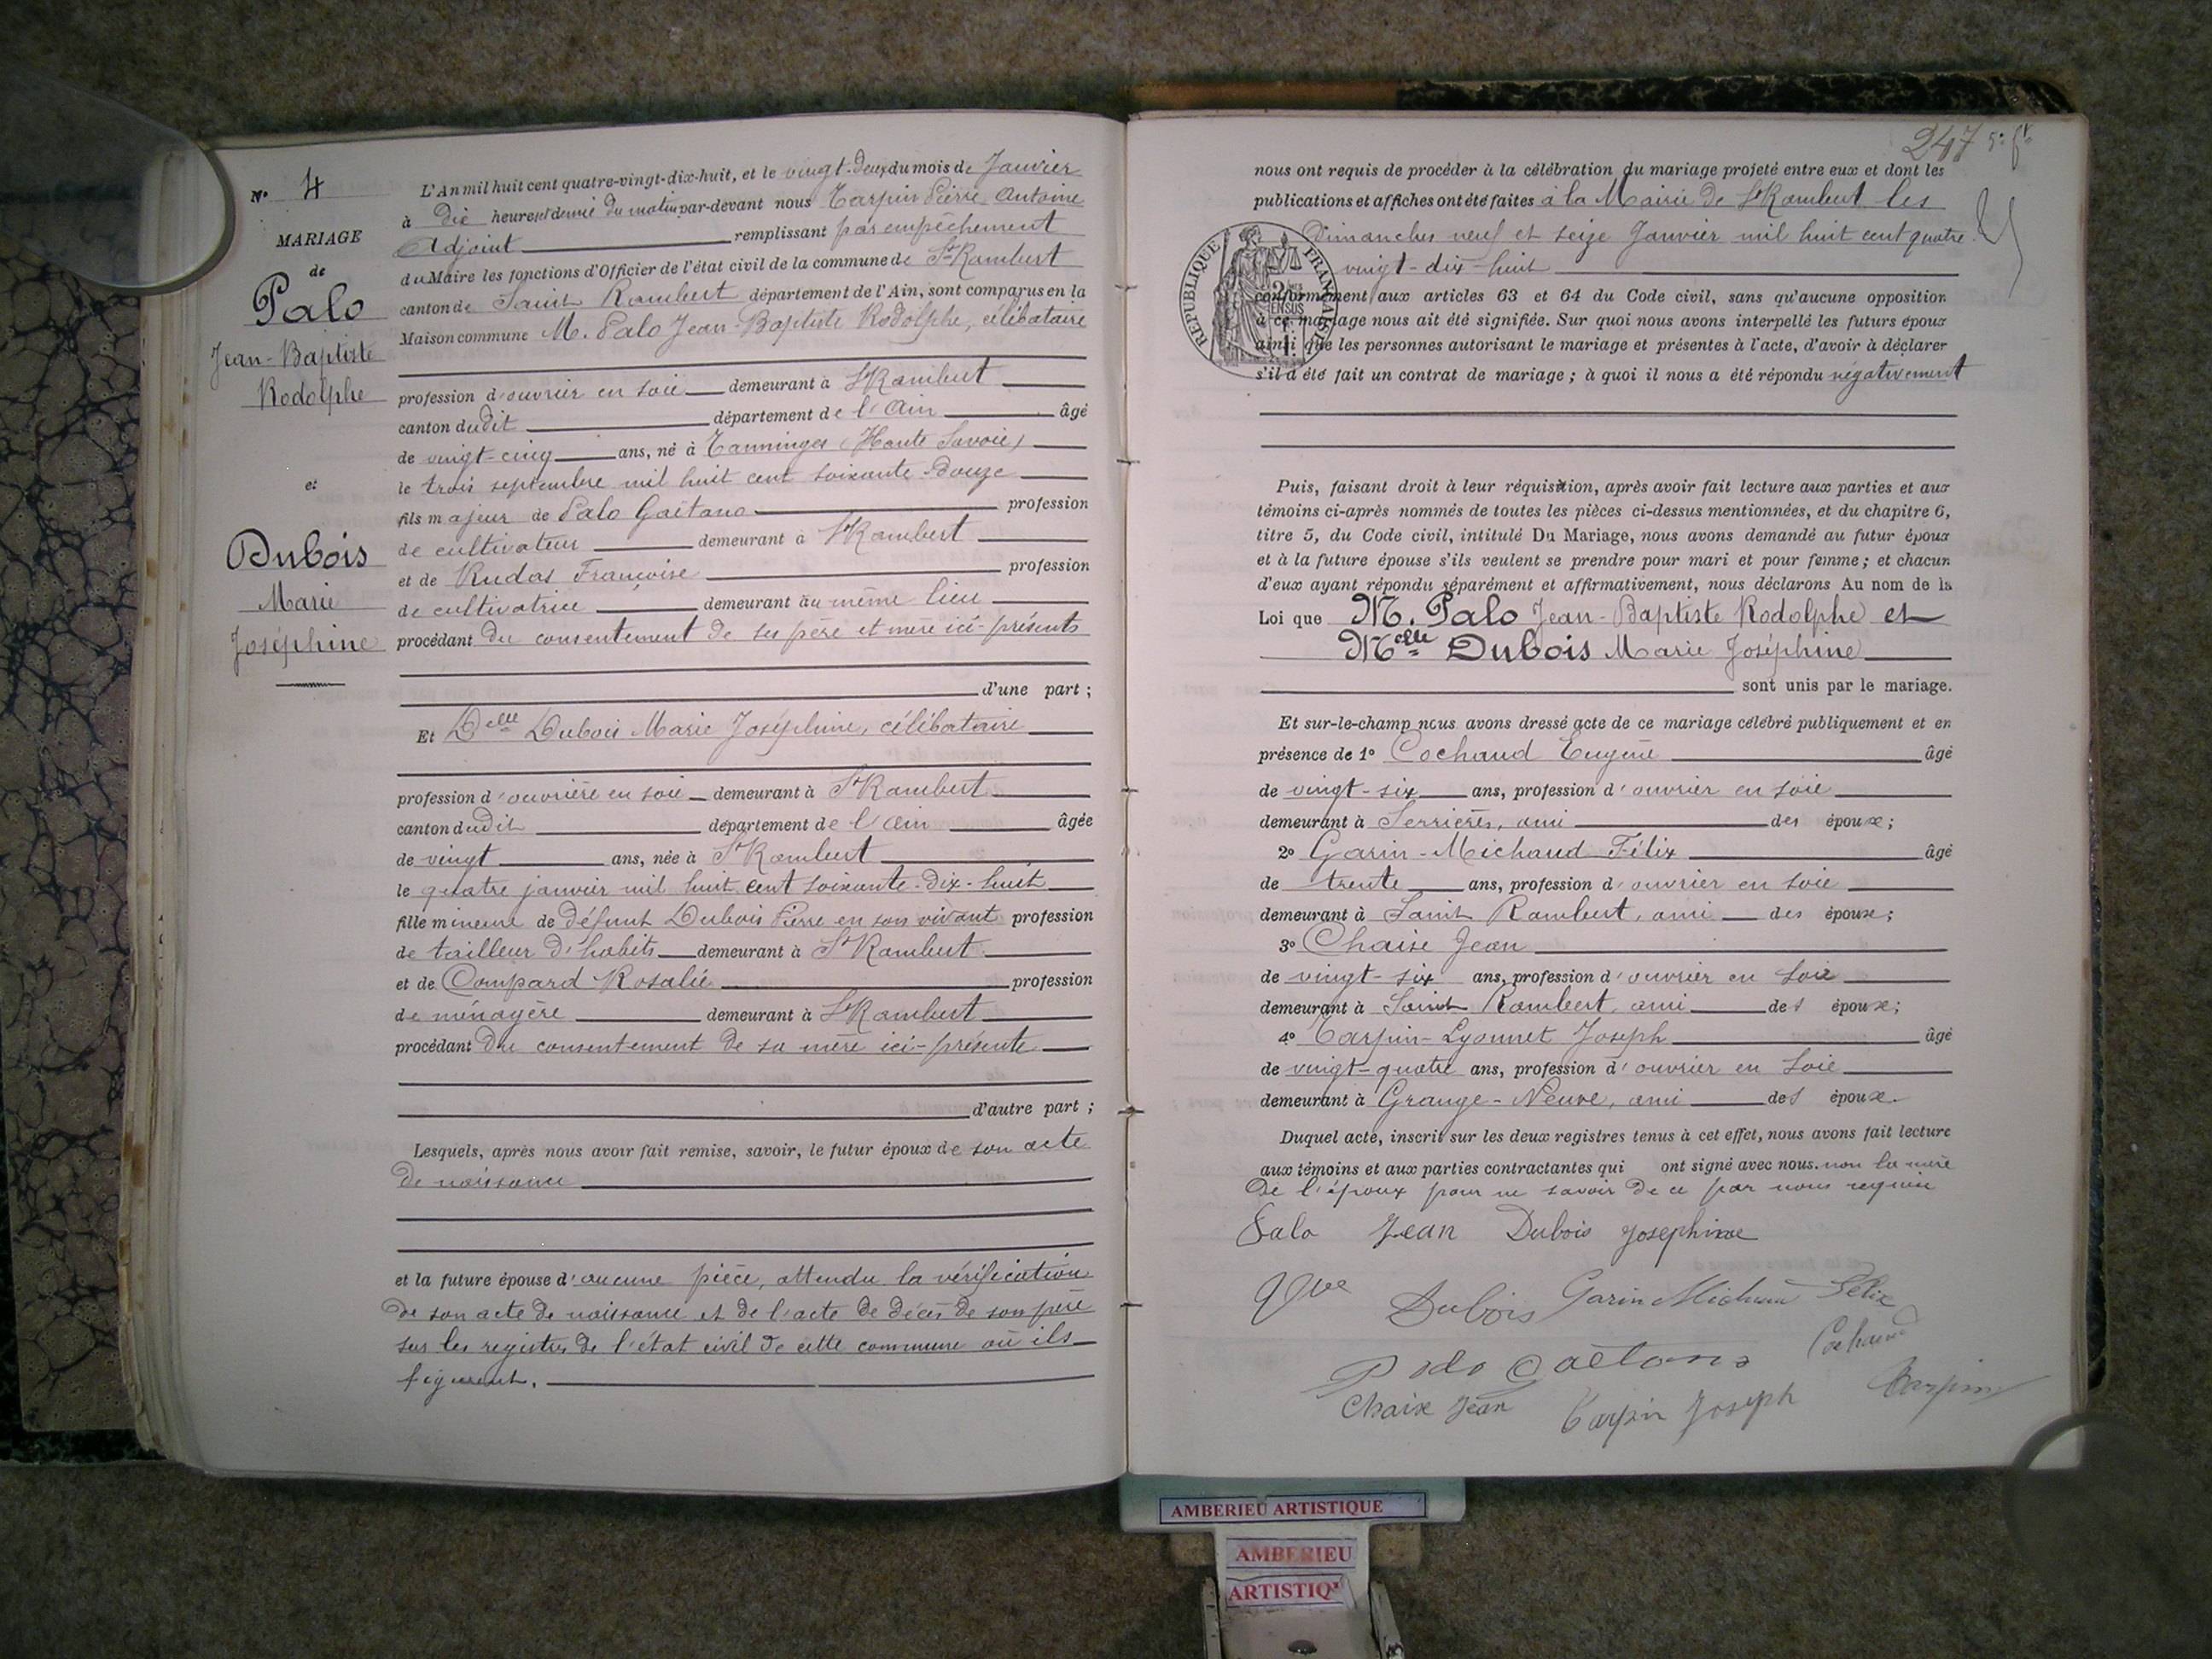 N° 4
MARIAGE
de
Palo
Jean-Baptiste
Rodolphe
et
Dubois
Marie
Joséphine
L'An mil huit cent quatre-vingt-dix-huit, et le vingt-deux du mois de Janvier
à dix heures et demie du matin par-devant nous Tarpin Pierre Antoine
Adjoint remplissant par empêchement
du Maire les fonctions d'Officier de l'état civil de la commune de St Rambert
canton de Saint Rambert département de l'Ain, sont comparus en la
Maison commune M. Palo Jean-Baptiste Rodolphe, célibataire
profession d'ouvrier en soie demeurant à St Rambert
canton dudit département de l'Ain âgé
de vingt-cinq ans, né à Tanninges (Haute Savoie)
le trois septembre mil huit cent soixante-douze
fils majeur de Palo Gaëtano profession
de cultivateur demeurant à St Rambert
et de Rudas Françoise profession
de cultivatrice demeurant au même lieu
procédant du consentement de ses père et mère ici-présents
d'une part ;
Et Delle Dubois Marie Joséphine, célibataire
profession d'ouvrière en soie demeurant à St Rambert
canton dudit département de l'Ain âgée
de vingt ans, née à St Rambert
le quatre janvier mil huit cent soixante-dix-huit
fille mineure de défunt Dubois Pierre en son vivant profession
de tailleur d'habits demeurant à St Rambert
et de Compard Rosalie profession
de ménagère demeurant à St Rambert
procédant du consentement de sa mère ici-présente
d'autre part ;
Lesquels, après nous avoir fait remise, savoir, le futur époux de son acte
de naissance
et la future épouse d'aucune pièce, attendu la vérification
de son acte de naissance et de l'acte de décès de son père
sur les registres de l'état civil de cette commune où ils
figurent.
247
nous ont requis de procéder à la célébration du mariage projeté entre eux et dont les
publications et affiches ont été faites à la Mairie de St Rambert les
Dimanches neuf et seize Janvier mil huit cent quatre
vingt-dix-huit
conformément aux articles 63 et 64 du Code civil, sans qu'aucune opposition
à ce mariage nous ait été signifiée. Sur quoi nous avons interpellé les futurs époux
ainsi que les personnes autorisant le mariage et présentes à l'acte, d'avoir à déclarer
s'il a été fait un contrat de mariage ; à quoi il nous a été répondu négativement
REPUBLIQUE FRANÇAISE
Puis, faisant droit à leur réquisition, après avoir fait lecture aux parties et aux
témoins ci-après nommés de toutes les pièces ci-dessus mentionnées, et du chapitre 6,
titre 5, du Code civil, intitulé Du Mariage, nous avons demandé au futur époux
et à la future épouse s'ils veulent se prendre pour mari et pour femme ; et chacun
d'eux ayant répondu séparément et affirmativement, nous déclarons Au nom de la
Loi que M. Palo Jean-Baptiste Rodolphe et
Melle Dubois Marie Joséphine
sont unis par le mariage.
Et sur-le-champ nous avons dressé acte de ce mariage célébré publiquement et en
présence de 1° Cochaud Eugène âgé
de vingt-six ans, profession d'ouvrier en soie
demeurant à Serrières, ami des époux ;
2° Garin-Michaud Félix âgé
de trente ans, profession d'ouvrier en soie
demeurant à Saint Rambert, ami des époux ;
3° Chaise Jean
de vingt-six ans, profession d'ouvrier en soie
demeurant à Saint Rambert, ami des époux ;
4° Tarpin-Lyonnet Joseph âgé
de vingt-quatre ans, profession d'ouvrier en soie
demeurant à Grange-Neuve, ami des époux.
Duquel acte, inscrit sur les deux registres tenus à cet effet, nous avons fait lecture
aux témoins et aux parties contractantes qui ont signé avec nous. non la mère
de l'époux pour ne savoir de ce par nous requise
Palo Jean Dubois Josephine
Vve Dubois Garin Michaud Félix
Cochaud
Palo Gaëtano
Chaise Jean Tarpin Joseph Tarpin
AMBERIEU ARTISTIQUE
AMBERIEU
ARTISTIQ